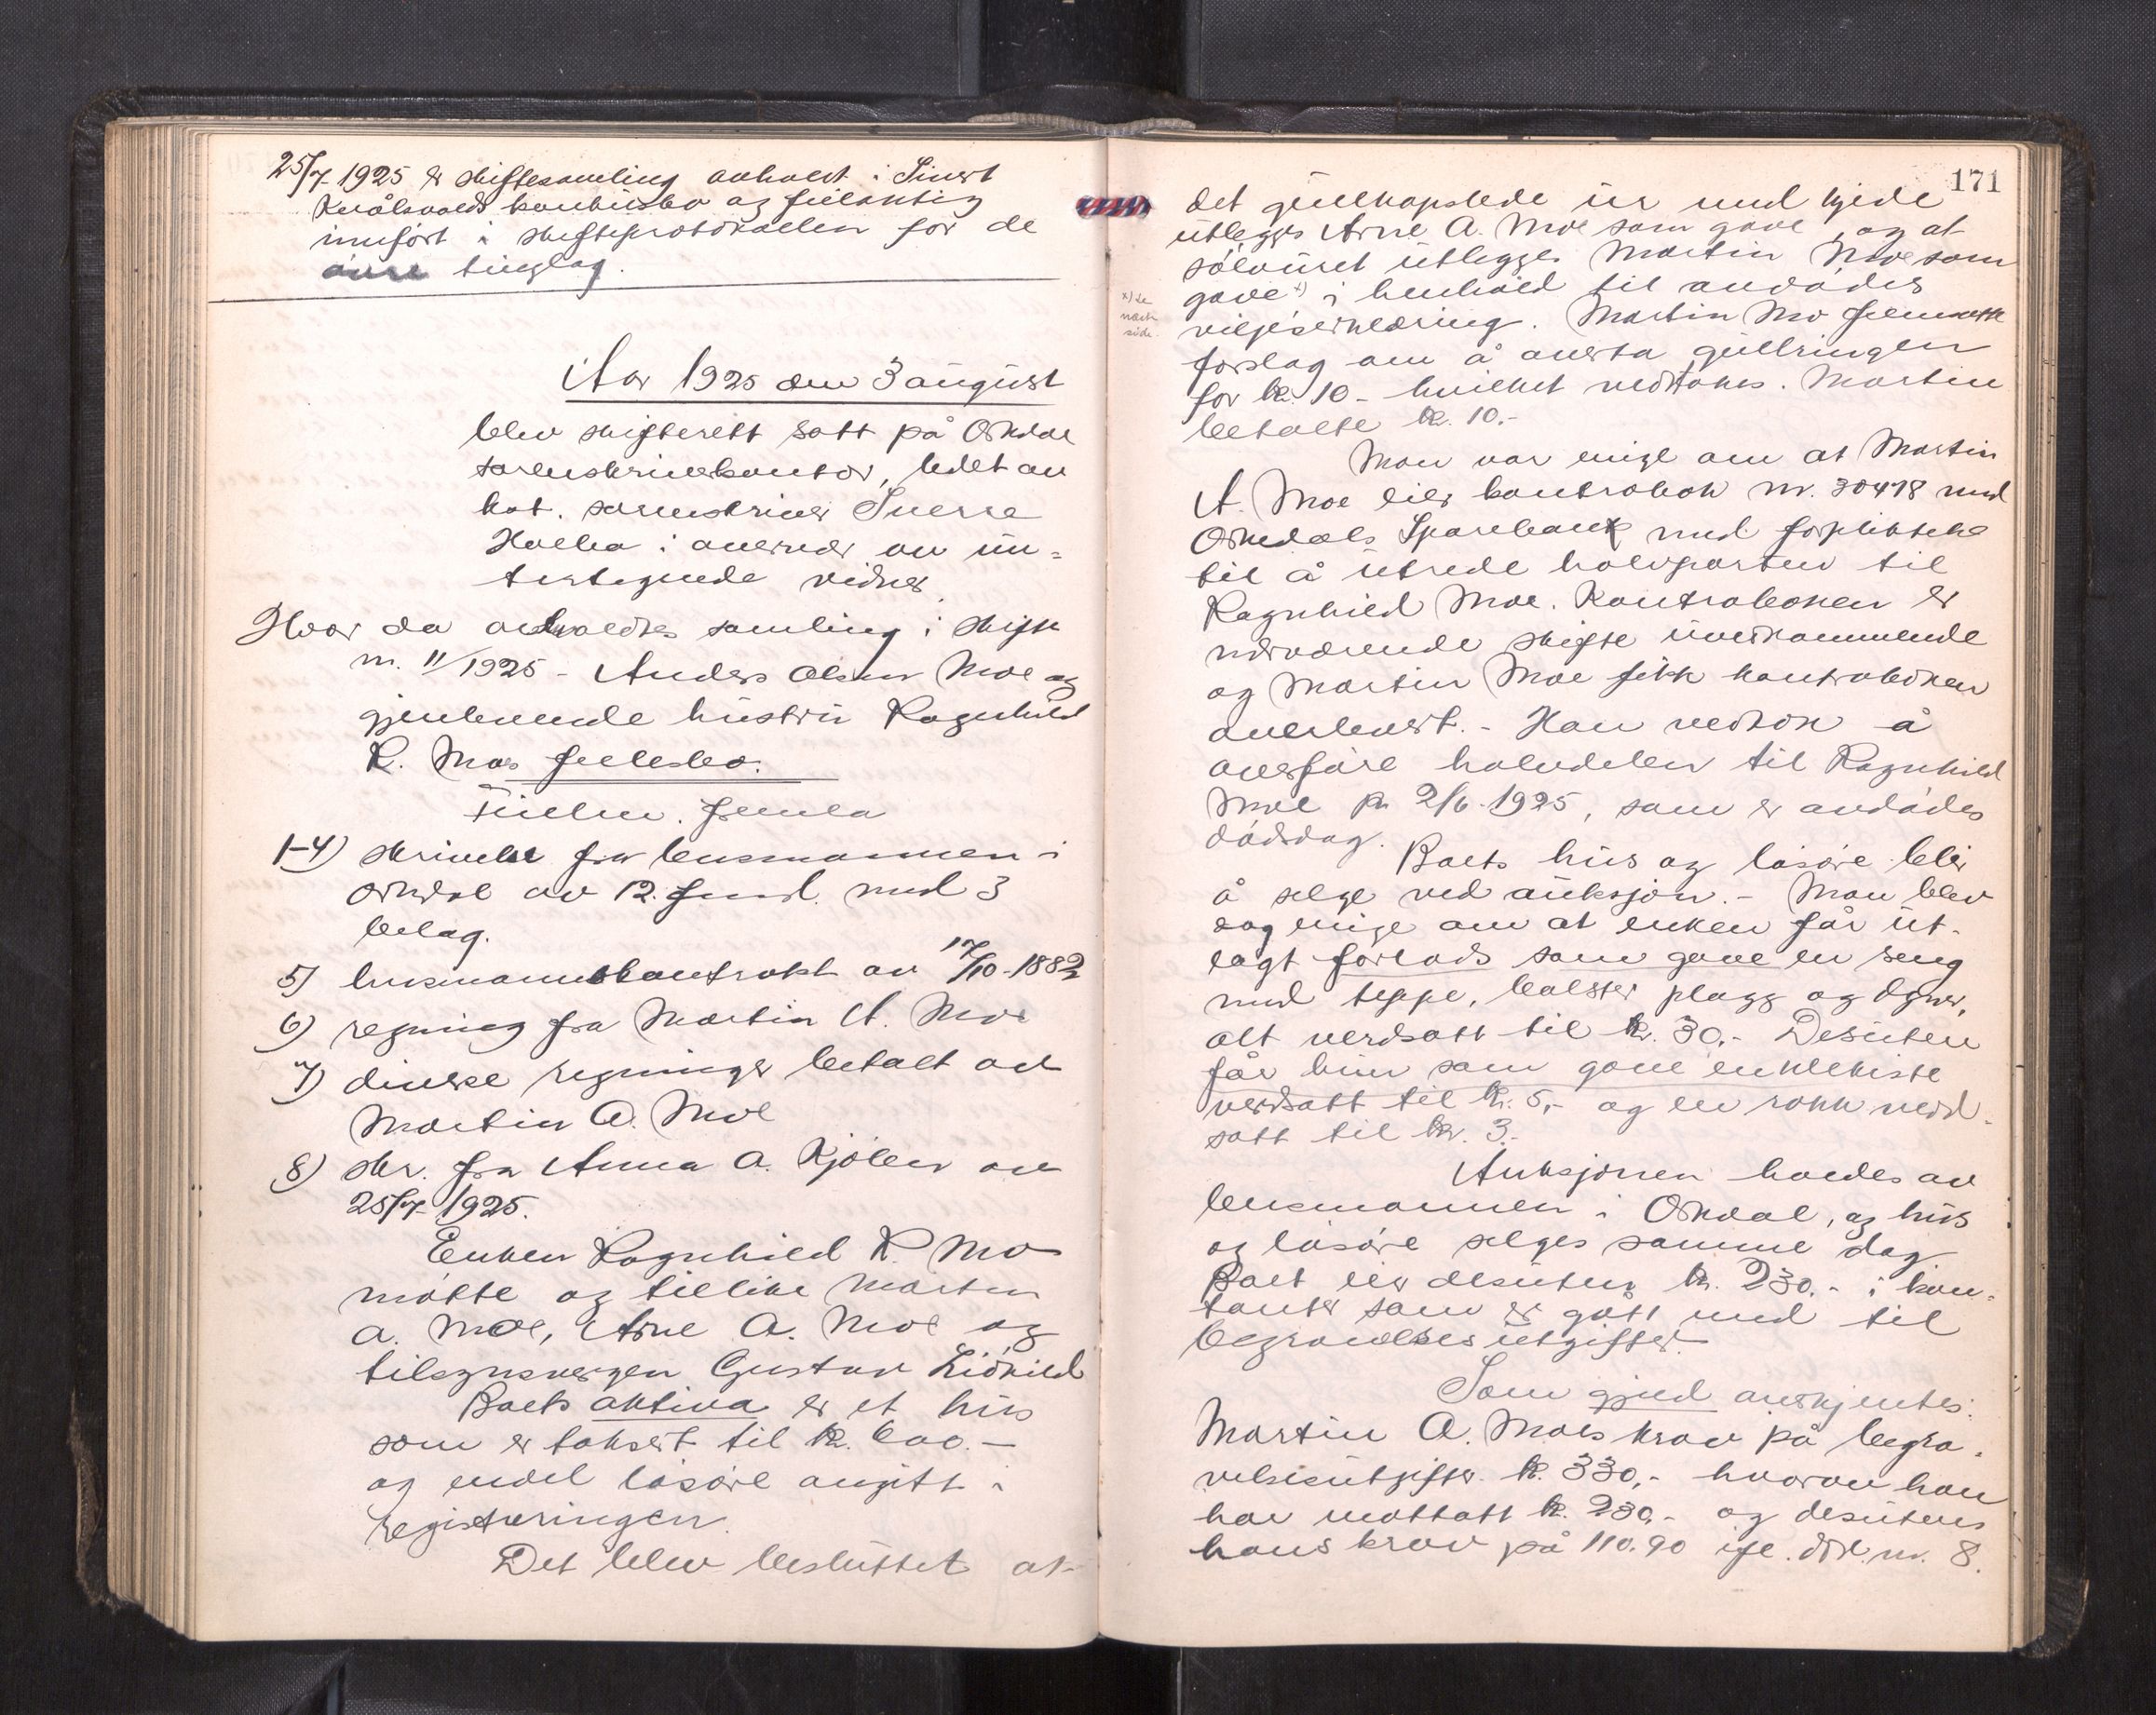 25/7 1925 er skiftesamling avholdt i Sivert
Kvålsvolds konkursbo og fuldstændig
innført i skifteprotokollen for de
øvre tinglag.
Aar 1925 den 3 august
blev skifterett satt på Orkdal
sorenskriverkontor, ledet av
kst. sorenskriver Sverre
Holba i overvær av un-
tertegnede vidner
Hvor da avholdtes samling i skifte
nr. 11/1925 - Anders Olsen Moe og
gjenlevende hustru Ragnhild
K. Moes fellesbo.
Fullm. fremla
1-4) skrivelse fra lensmannen i
Orkdal av 12. f.md. med 3
bilag.
5) husmannskontrakt av 17/10-1882
6) regning fra Martin A. Moe
7) diverse regninger betalt av
Martin A. Moe
8) skr. fra Anna A. Kjølen av
25/7 1925.
Enken Ragnhild K. Mo
møtte og tillike Martin
A. Moe, Arne A. Moe og
tilsynsvergen Gustav
Boets aktiva er et hus
som er taksert til kr. 600.-
og endel løsøre angitt i
registreringen.
Det blev besluttet at
171
det gullkapslede ur med kjede
utlegges Arne A. Moe som gave, og at
sølvuret utlegges Martin Moe som
gave x) i henhold til avdødes
x) se
næste
side.
viljeserklæring. Martin Mo fremsatte
forslag om å overta gullringen
for kr. 10.- hvilket vedtokes. Martin
betalte kr. 10.-
Man var enige om at Martin
A. Moe eier kontrabok nr. 30478 med
Orkedals Sparebank med forpliktelse
til å utrede halvparten til
Ragnhild Moe. Kontraboken er
nærværende skifte uvedkommende
og Martin Moe fikk kontraboken
overlevert. - Han vedtok å
overføre halvdelen til Ragnhild
Moe pr. 2/6-1925, som er avdødes
dødsdag.
Boets hus og løsøre blir
å selge ved auksjon. - Man blev
og enige om at enken får ut-
lagt forlods som gave en seng
med teppe, bolster plagg og dyner,
alt verdsatt til kr. 30.- Desuten
får hun som gave en klekiste
verdsatt til kr. 5.- og en rokk verd-
satt til kr. 3.-
Auksjonen holdes av
lensmannen i Orkdal, og hus
og løsøre selges samme dag
Boet eier desuten kr. 230.- i kon-
tanter som er gått med til
begravelsesutgifter.
Som gjeld anerkjentes:
Martin A. Moes krav på begra-
velsesutgifter kr. 330,- hvorav han
har mottatt kr. 230,- og desuten
hans krav på 110.90 ifl. dok. nr. 8.